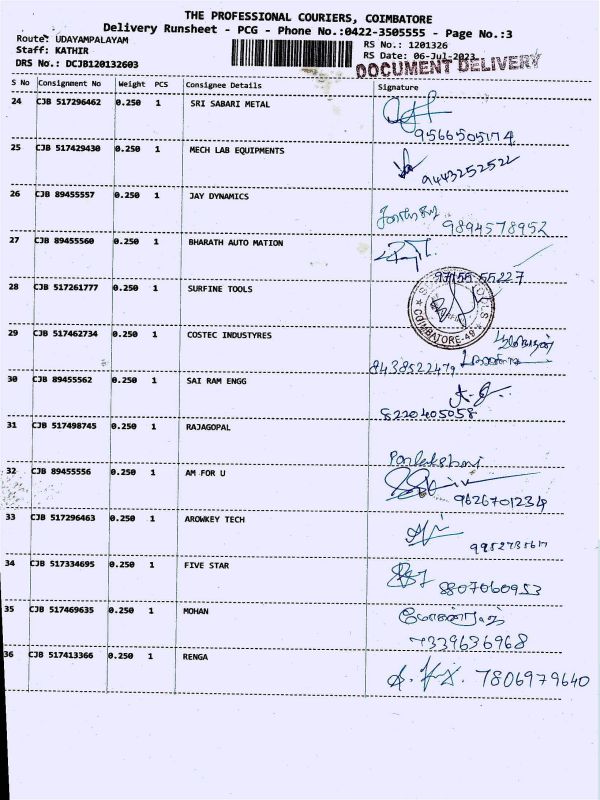 THE PROFESSIONAL COURIERS, COIMBATORE
Delivery Runsheet - PCG - Phone No.:0422-3505555 - Page No.:3
Route: UDAYAMPALAYAM RS No.: 1201326
Staff: KATHIR RS Date: 06-Jul-2023
DRS No.: DCJB120132603 DOCUMENT DELIVERY
S No Consignment No Weight PCS Consignee Details Signature
24 CJB 517296462 0.250 1 SRI SABARI METAL
9566505174
25 CJB 517429430 0.250 1 MECH LAB EQUIPMENTS
9443252522
26 CJB 89455557 0.250 1 JAY DYNAMICS
9894578952
27 CJB 89455560 0.250 1 BHARATH AUTO MATION
97155 55227
28 CJB 517261777 0.250 1 SURFINE TOOLS
COIMBATORE-49
29 CJB 517462734 0.250 1 COSTEC INDUSTYRES
8438522479
30 CJB 89455562 0.250 1 SAI RAM ENGG
8220405058
31 CJB 517498745 0.250 1 RAJAGOPAL
Ponlakshmi
32 CJB 89455556 0.250 1 AM FOR U
9626701234
33 CJB 517296463 0.250 1 AROWKEY TECH
34 CJB 517334695 0.250 1 FIVE STAR
8807060953
35 CJB 517469635 0.250 1 MOHAN
மோகன்ராஜ்
7339636968
36 CJB 517413366 0.250 1 RENGA
7806979640